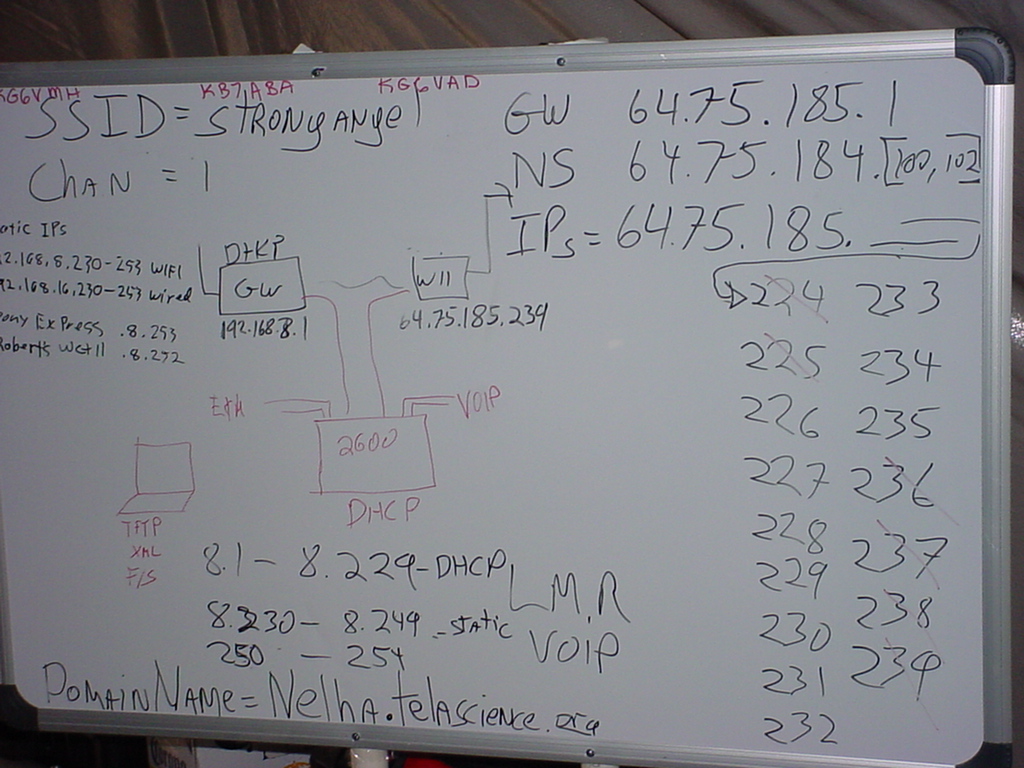 KG6VMH KB7ABA KG6VAD
SSID = STRONGANGEl
CHAN = 1
GW 64.75.185.1
NS 64.75.184.[100, 102]
IPs = 64.75.185.
224 233
225 234
226 235
227 236
228 237
229 238
230 239
231
232
atic IPs
92.168.8.230-253 WIFI
92.168.16.230-253 wired
ony ExPress .8.253
Roberts Wet11 .8.252
DHCP
GW
192.168.8.1
W11
64.75.185.239
EtH
VOIP
2600
DHCP
TFTP
XML
F/S
8.1 - 8.229 - DHCP
8.230 - 8.249 - static
250 - 254
LMR
VOIP
DomainName = Nelha.telascience.org